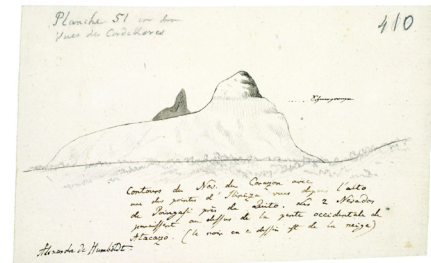 Planche 51 
Vues des Cordillères
410
Contours du Nev. du Corazon avec
une des pointes d'Iliniza vues depuis l'alto
de Poingasi près de Quito. Les 2 Nevados
paraissent au dessus de la pente occidentale de
Atacazo. (le noir en ce dessin est de la neige)
Alexandre de Humboldt